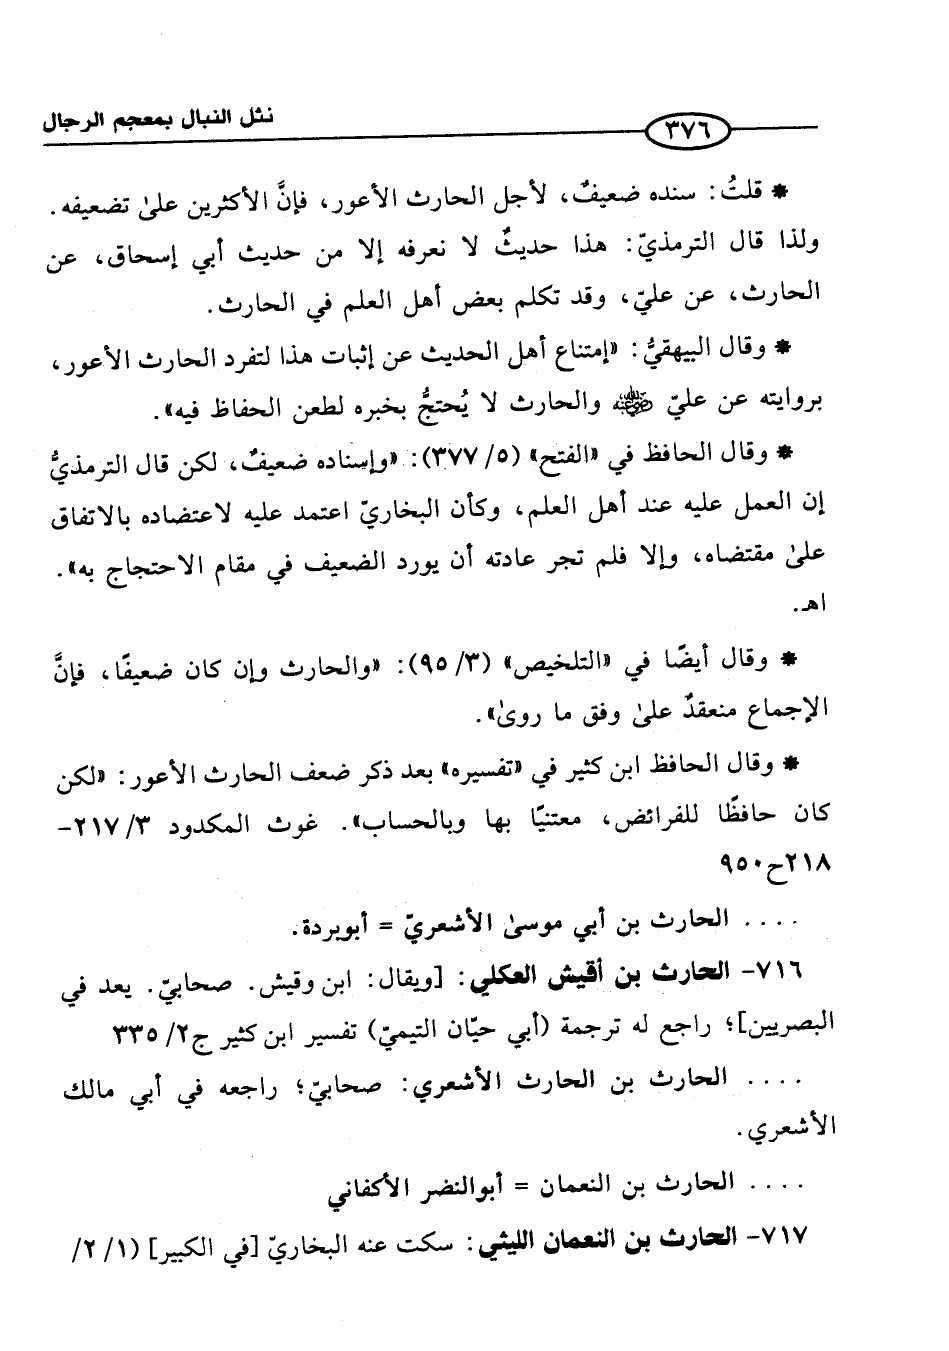 نثل النبال بمعجم الرجال
٣٧٦
* قلتُ: سنده ضعيفٌ، لأجل الحارث الأعور، فإنَّ الأكثرين علىٰ تضعيفه.
ولذا قال الترمذيّ: هذا حديثٌ لا نعرفه إلا من حديث أبي إسحاق، عن
الحارث، عن عليّ، وقد تكلم بعض أهل العلم في الحارث.
* وقال البيهقيُّ: «إمتناع أهل الحديث عن إثبات هذا لتفرد الحارث الأعور،
بروايته عن عليّ رضي الله عنه والحارث لا يُحتجُّ بخبره لطعن الحفاظ فيه».
* وقال الحافظ في «الفتح» (٥/ ٣٧٧): «وإسناده ضعيفٌ، لكن قال الترمذيُّ
إن العمل عليه عند أهل العلم، وكأن البخاريّ اعتمد عليه لاعتضاده بالاتفاق
علىٰ مقتضاه، وإلا فلم تجر عادته أن يورد الضعيف في مقام الاحتجاج به».
اهـ.
* وقال أيضًا في «التلخيص» (٣/ ٩٥): «والحارث وإن كان ضعيفًا، فإنَّ
الإجماع منعقدٌ علىٰ وفق ما روىٰ».
* وقال الحافظ ابن كثير في «تفسيره» بعد ذكر ضعف الحارث الأعور: «لكن
كان حافظًا للفرائض، معتنيًا بها وبالحساب». غوث المكدود ٣/ ٢١٧-
٢١٨ح٩٥٠
.... الحارث بن أبي موسىٰ الأشعريّ = أبوبردة.
٧١٦- الحارث بن أقيش العكلي: [ويقال: ابن وقيش. صحابيّ. يعد في
البصريين]؛ راجع له ترجمة (أبي حيّان التيميّ) تفسير ابن كثير ج٢/ ٣٣٥
.... الحارث بن الحارث الأشعري: صحابيّ؛ راجعه في أبي مالك
الأشعري.
.... الحارث بن النعمان = أبوالنضر الأكفاني
٧١٧- الحارث بن النعمان الليثي: سكت عنه البخاريّ [في الكبير] (١/ ٢/